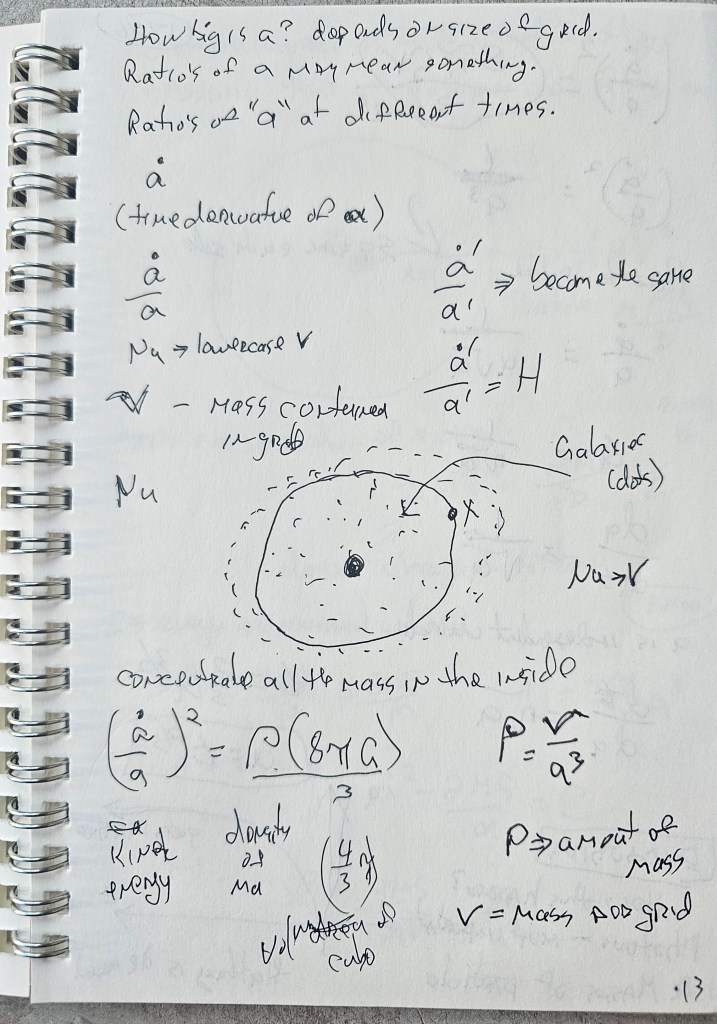 How big is a? depends on size of grid.
Ratio's of a may mean something.
Ratio's of "a" at different times.
ȧ
(time derivative of a)
ȧ/a
ȧ'/a' ⇒ become the same
Nu → lowercase v
ȧ'/a' = H
V - mass contained
in grid
Galaxies
(dots)
Nu
X
Nu → V
concentrate all the mass in the inside
(ȧ/a)² = ρ(8πG)/3
ρ = v/a³
Kinetic
energy
density
of
Ma
(4/3 π)
Volume of
cube
ρ ⇒ amout of
mass
V = mass per grid
.13